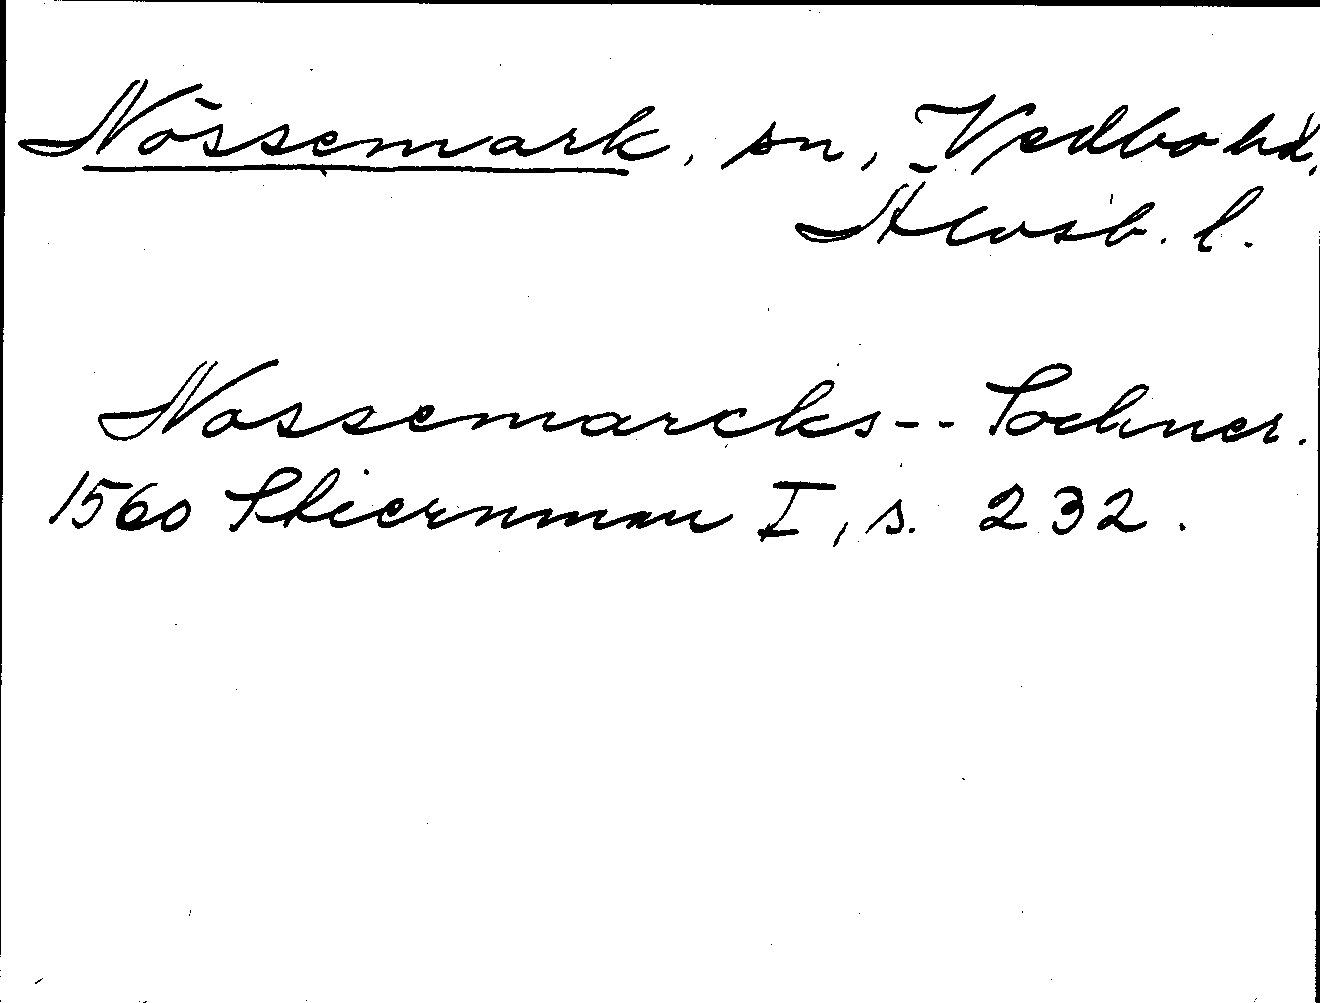 Nössemark, sn, Vedbo hd,
Älvsb. l.
Nossemarcks-- Sochner.
1560 Stiernman I, s. 232.